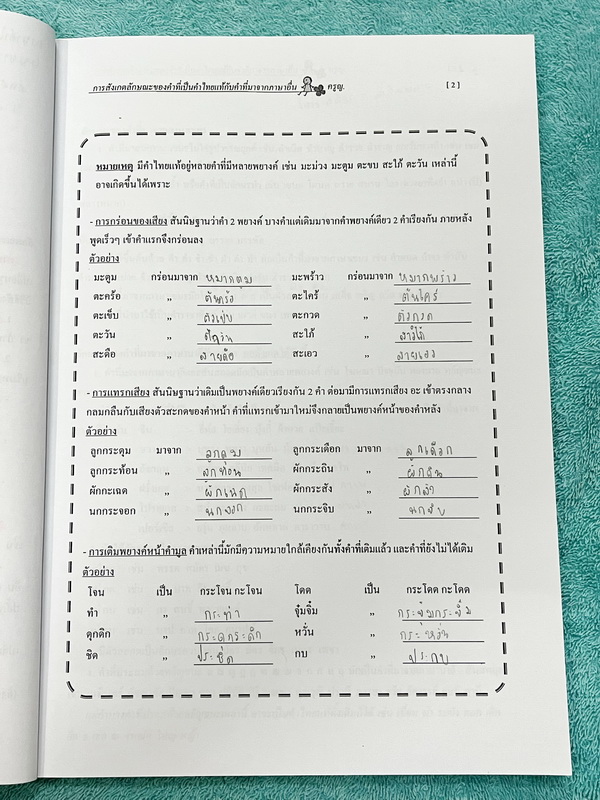 การสังเกตลักษณะของคำที่เป็นคำไทยแท้กับคำที่มาจากภาษาอื่น ครูญ. [ 2 ]
หมายเหตุ มีคำไทยแท้อยู่หลายคำที่มีหลายพยางค์ เช่น มะม่วง มะตูม ตะขบ สะใภ้ ตะวัน เหล่านี้
อาจเกิดขึ้นได้เพราะ
- การกร่อนของเสียง สันนิษฐานว่าคำ 2 พยางค์ บางคำแต่เดิมมาจากคำพยางค์เดียว 2 คำเรียงกัน ภายหลัง
พูดเร็วๆ เข้าคำแรกจึงกร่อนลง
ตัวอย่าง
มะตูม กร่อนมาจาก หมากตูม มะพร้าว กร่อนมาจาก หมากพร้าว
ตะคร้อ ,, ต้นคร้อ ตะไคร้ ,, ต้นไคร้
ตะเข็บ ,, ตัวเข็บ ตะกวด ,, ตัวกวด
ตะวัน ,, ตาวัน สะใภ้ ,, สาวใภ้
สะดือ ,, สายดือ สะเอว ,, สายเอว
- การแทรกเสียง สันนิษฐานว่าเดิมเป็นพยางค์เดียวเรียงกัน 2 คำ ต่อมามีการแทรกเสียง อะ เข้าตรงกลาง
กลมกลืนกับเสียงตัวสะกดของคำหน้า คำที่แทรกเข้ามาใหม่จึงกลายเป็นพยางค์หน้าของคำหลัง
ตัวอย่าง
ลูกกระดุม มาจาก ลูกดุม ลูกกระเดือก มาจาก ลูกเดือก
ลูกกระท้อน ,, ลูกท้อน ผักกระถิน ,, ผักถิน
ผักกะเฉด ,, ผักเฉด ผักกระสัง ,, ผักสัง
นกกระจอก ,, นกจอก นกกระจิบ ,, นกจิบ
- การเติมพยางค์หน้าคำมูล คำเหล่านี้มักมีความหมายใกล้เคียงกันทั้งคำที่เติมแล้ว และคำที่ยังไม่ได้เติม
ตัวอย่าง
โจน เป็น กระโจน กะโจน โดด เป็น กระโดด กะโดด
ทำ ,, กระทำ จุ๋มจิ๋ม ,, กระจุ๋มกระจิ๋ม
ดุกดิก ,, กระดุกกระดิก หวั่น ,, กระหวั่น
ชิด ,, ประชิด กบ ,, ประกบ